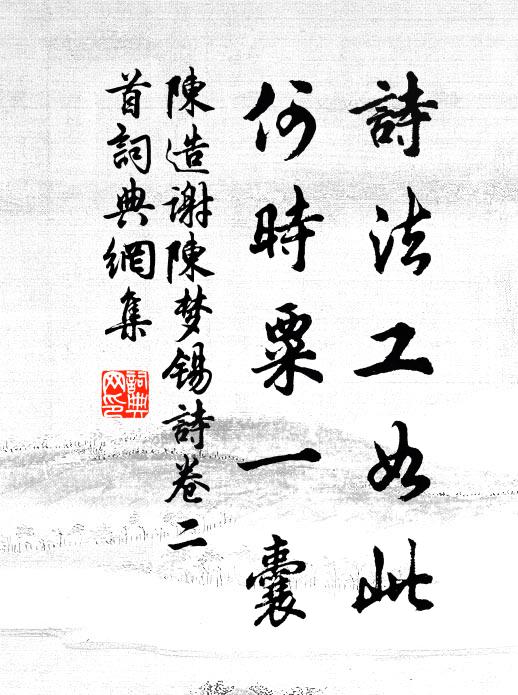 詩法工如此
何時粟一囊
陳造謝陳梦錫詩卷二
首詞典網集
詞典网印